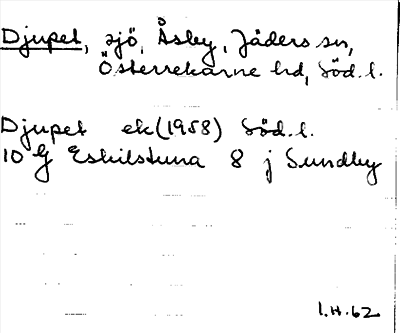 Djupet, sjö, Åsby, Jäders sn,
Österrekarne hd, Söd. l.
Djupet ek (1958) Söd. l.
10 G Eskilstuna 8 j Sundby
I.H. 62